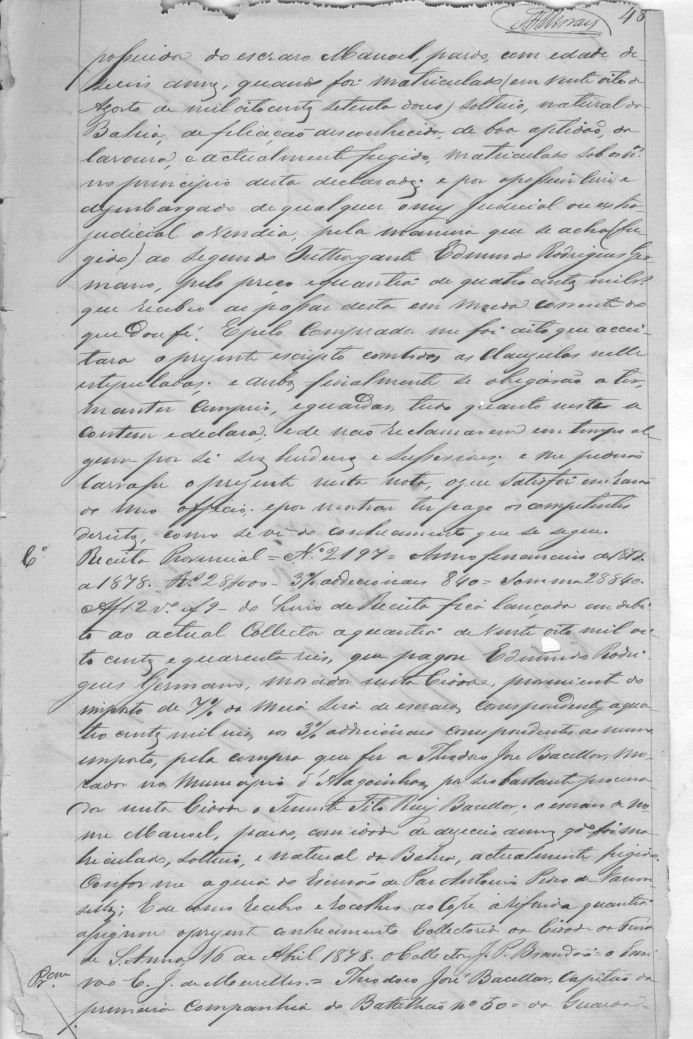 48
possuidor do escravo Manoel, pardo, com edade de
seis annos, quando foi matriculado (em vinte oito de
Agosto de mil oito centos setenta dous) solteiro, natural da
Bahia, de filiação desconhecida, de boa aptidão, da
lavoura, e actualmente fugido, matriculado sob os nos
no principio desta declarados; e por o possuir livre e
dezembargado de qualquer onus judicial ou extra
judicial o vendia, pela maneira que se acha (fu-
gido) ao segundo Outhorgante Edmundo Rodrigues Ger-
mano, pelo preço e quantia de quatro centos mil rs
que recebeo ao passar desta em moeda corrente do
que dou fé. E pelo Comprador me foi dito, que accei-
tava o prezente escripto com todas as clausulas nelle
estepuladas; e ambos finalmente se obrigárão a ter,
manter cumprir, e guardar, tudo quanto nesta se
contem e declara, e de não reclamarem em tempo al-
gum por si seus herdeiros e sussessores; e me pedirão
lavrasse o prezente nesta nota, o que satisfiz em razão
de meu officio. e por mostrar ter pago os competentes
direitos, como se vê do conhecimento que se segue.
Co
Receita Provincial = No 2197 = Anno financeiro de 1877
a 1878. Rs 28$000 - 3% addicionais 840 = Somma 28840.
Af 12 vo do Livro de Receita fica lançada em debi-
to ao actual Collector a quantia de vinte oito mil oi-
to centos e quarenta reis, que pagou Edmundo Rodri-
gues Germano, morador nesta Cidade, proveniente do
imposto de 7% da meia siza de escravos, correspondente a qua-
tro centos mil reis, e os 3% addicionais correspondentes ao mesmo
imposto, pela compra que fez a Theodoro José Bacellar, mo-
rador no Municipio d'Alagoinhas, por seo bastante procura-
dor nesta Cidade o Tenente Tito Ruy Bacellar, o escravo de no-
me Manoel, pardo, com idade de dezeceis annos qdo foi ma-
triculado, solteiro, e natural da Bahia, actualmente fugido.
Conforme a guia do Escrivão de Paz Antonio Pedro de Vascon-
sellos; E de como recebeo e recolheo ao Cofre a referida quantia
assignou o prezente conhecimento Collectoria da Cidade da Feira
de S. Anna, 16 de Abril 1878. o Collector J. P. Brandão = o Escri-
vão C. J. de Meirelles. = Theodoro José Bacellar, Capitão da
Pcam
primeira companhia do Batalhão no 50 = da Guarda =